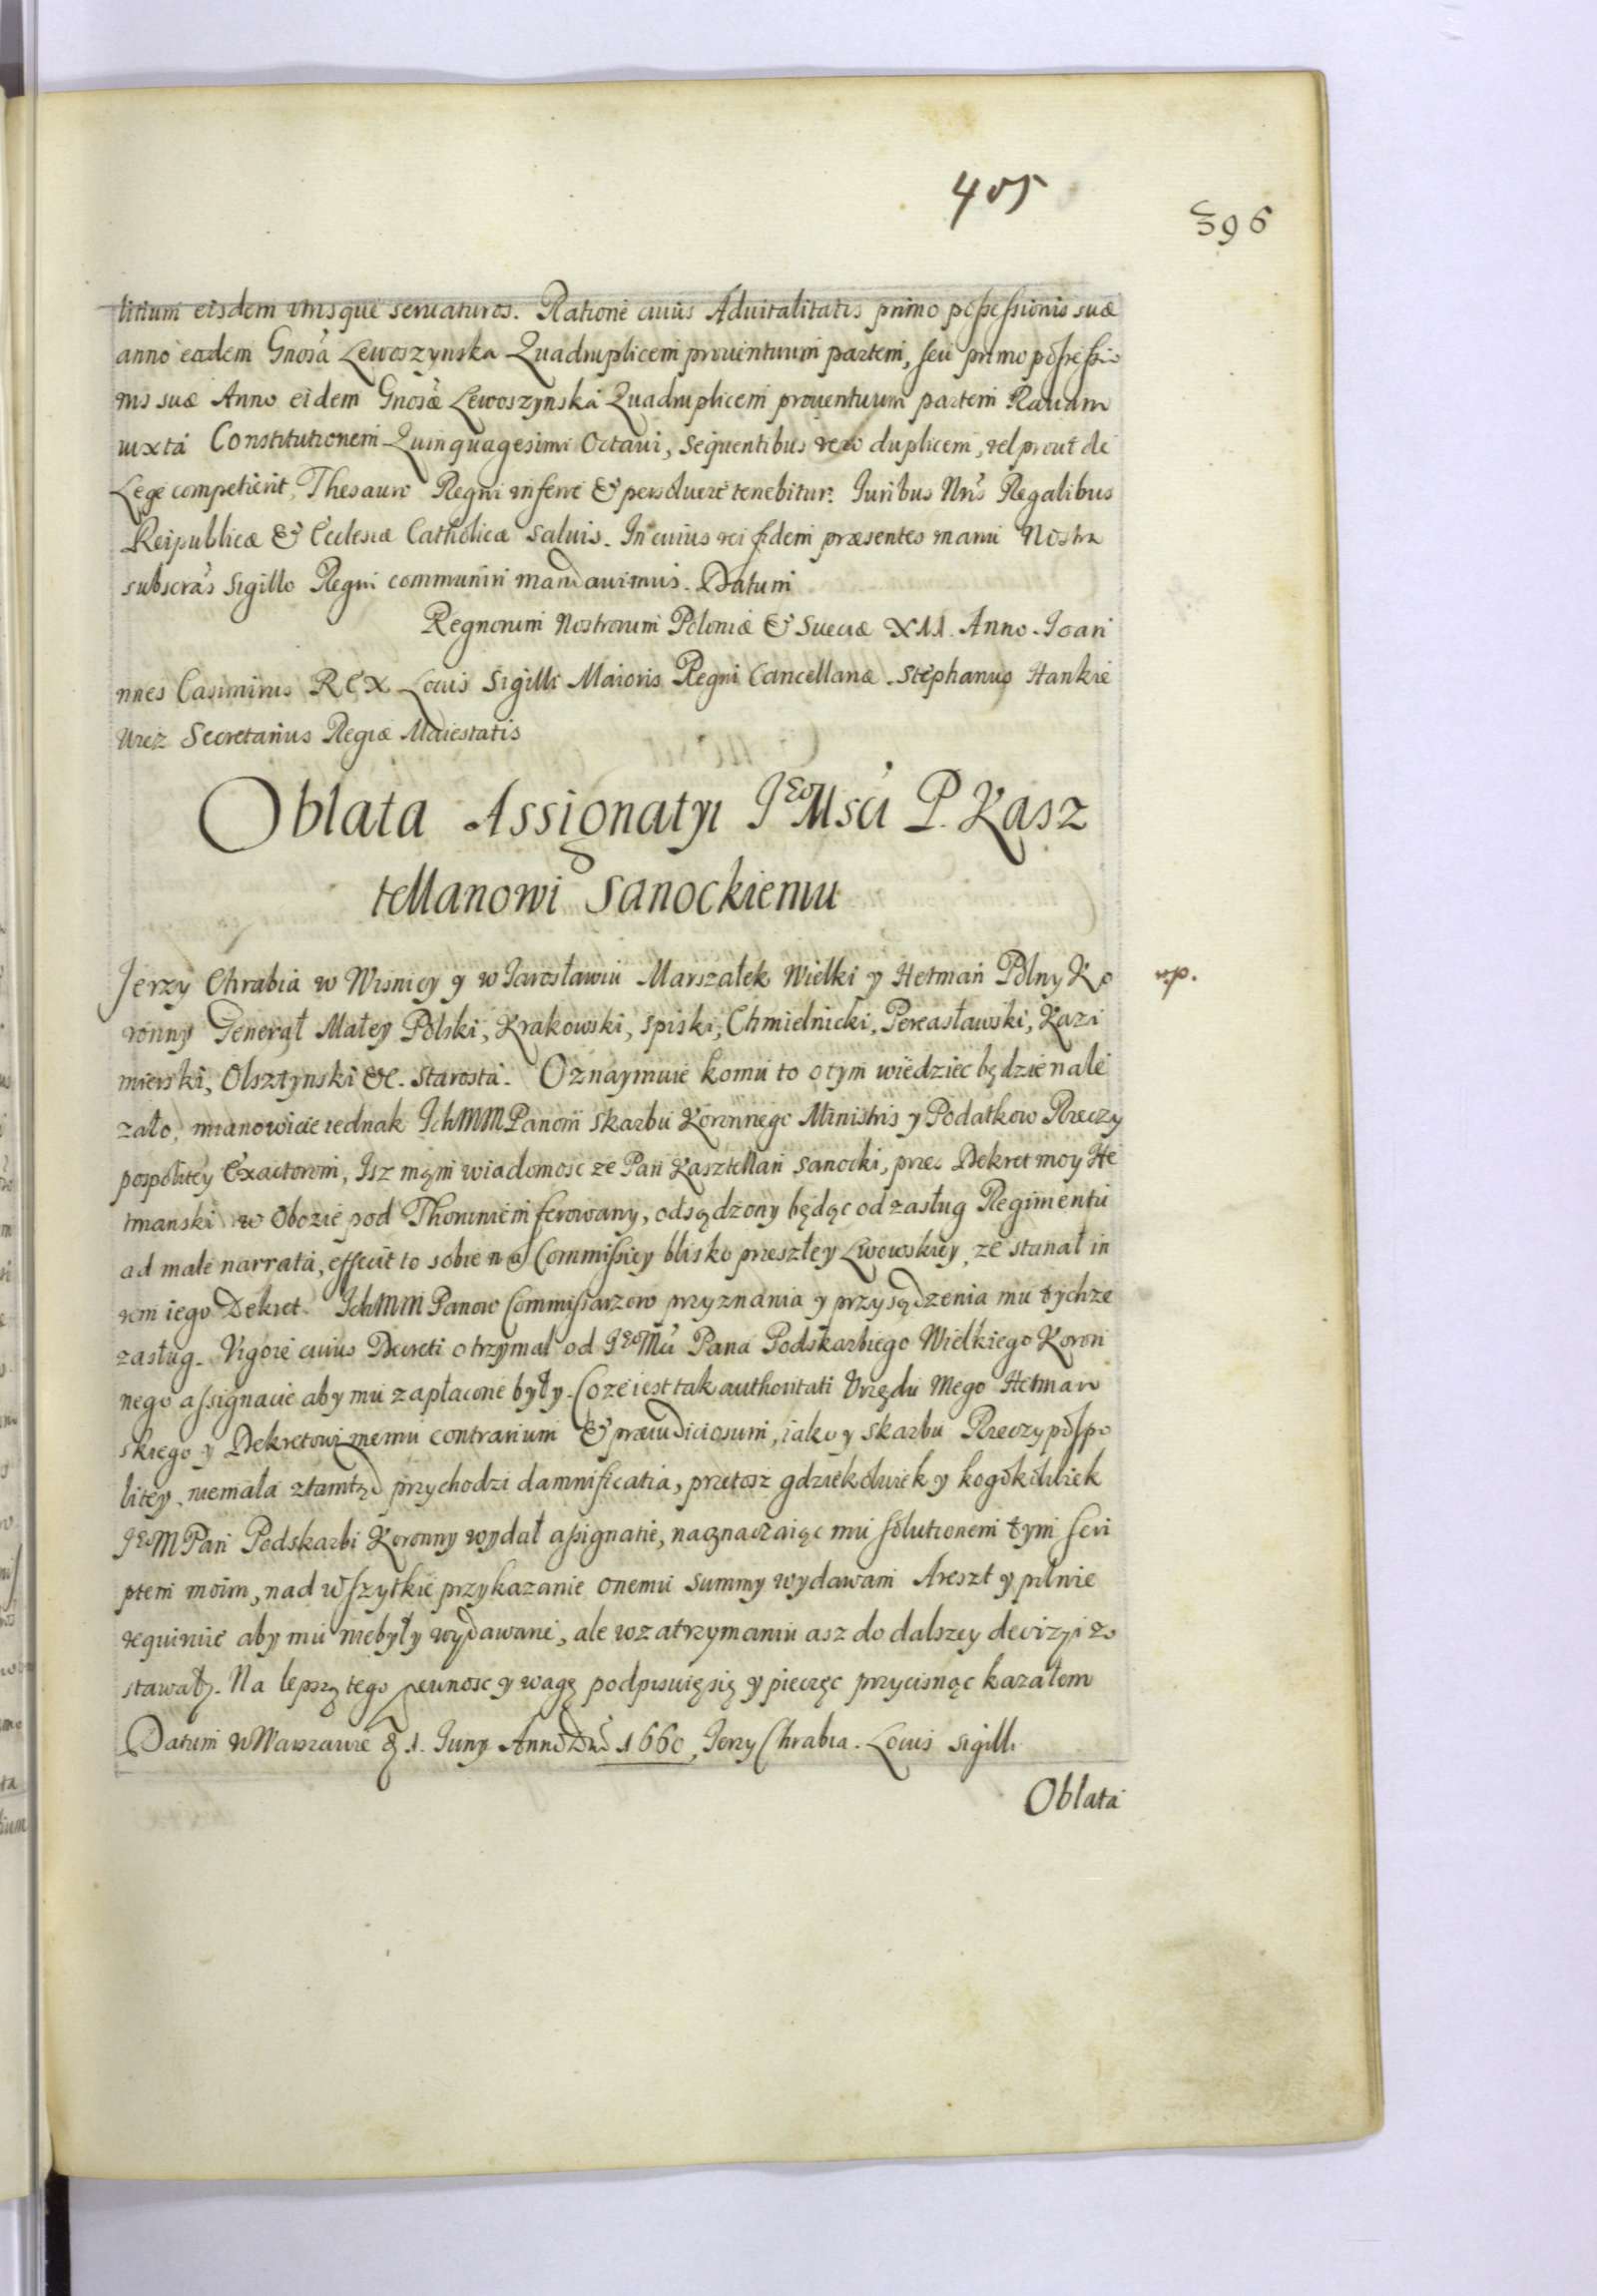 405
396
litium eisdem vtrisque seruaturos. Ratione cuius Aduitalitatis primo possessionis suæ
anno eadem Gnosa Lewoszynska Quadruplicem prouentuum partem, seu primo possessio
nis suæ Anno eidem Gnosæ Lewoszynska Quadruplicem prouentuum partem Rauam
iuxta Constitutionem Quinquagesimi Octaui, sequentibus vero duplicem, vel prout de
Lege competierit, Thesauro Regni inferre & persoluere tenebitur. Iuribus Nris Regalibus
Reipublicæ & Ecclesiæ Catholicæ saluis. In cuius rei fidem præsentes manu Nostra
subscras Sigillo Regni communiri mandauimus. Datum
Regnorum Nostrorum Poloniæ & Sueciæ XII. Anno. Ioan
nnes Casimirus REX Locus Sigilli Maioris Regni Cancellariæ. Stephanus Hankie
wicz Secretarius Regiæ Maiestatis
Oblata Assignatyi JEoMsci P. Kasz
tellanowi Sanockiemu
Jerzy Chrabia w Wisnicy y w Iarosławiu Marszałek Wielki y Hetman Polny Ko
ronny Generał Małey Polski, Krakowski, Spiski, Chmielnicki, Pereasławski, Kazi
mirski, Olsztynski &c. Starosta. Oznaymuie komu to o tym wiedziec będzie nale
zało, mianowicie iednak IchMM Panom Skarbu Koronnego Ministris y Podatkow Rzeczy
pospolitey Exactorom, Isz mam wiadomosc ze Pan Kasztellan Sanocki, przez Dekret moy He
tmanski w Obozie pod Thoruniem ferowany, odsądzony będąc od zasług Regimentu
ad male narrata, effecit to sobie na Commissiey blisko przeszłey Lwowskiey, ze stanał in
rem iego Dekret. IchMM Panow Commissarzow przyznania y przysądzenia mu tychze
zasług. Vigore cuius Decreti otrzymał od JEoMci Pana Podskarbiego Wielkiego Koron
nego assignacie aby mu zapłacone były. Co ze iest tak authoritati Vrzędu Mego Hetman
skiego y Dekretowi memu contrarium & præiudiciosum, iako y skarbu Rzeczypospo
litey, niemała ztamtąd przychodzi damnificatia, przetosz gdziekolwiek y kogokolwiek
JEoM Pan Podskarbi Koronny wydał assignatie, naznaczaiąc mu solutionem tym scri
ptem moim, nad wszytkie przykazanie onemu summy wydawam Areszt y pilnie
requiruie aby mu niebyły wydawane, ale w zatrzymaniu asz do dalszey decizyi zo
stawały. Na lepszą tego pewnosc y wagę podpisuię się y pieczęc przycisnąc kazałem
Datum w Warszawie 1. Iuny Anno Dni 1660, Jerzy Chrabia. Locus Sigilli
Oblata